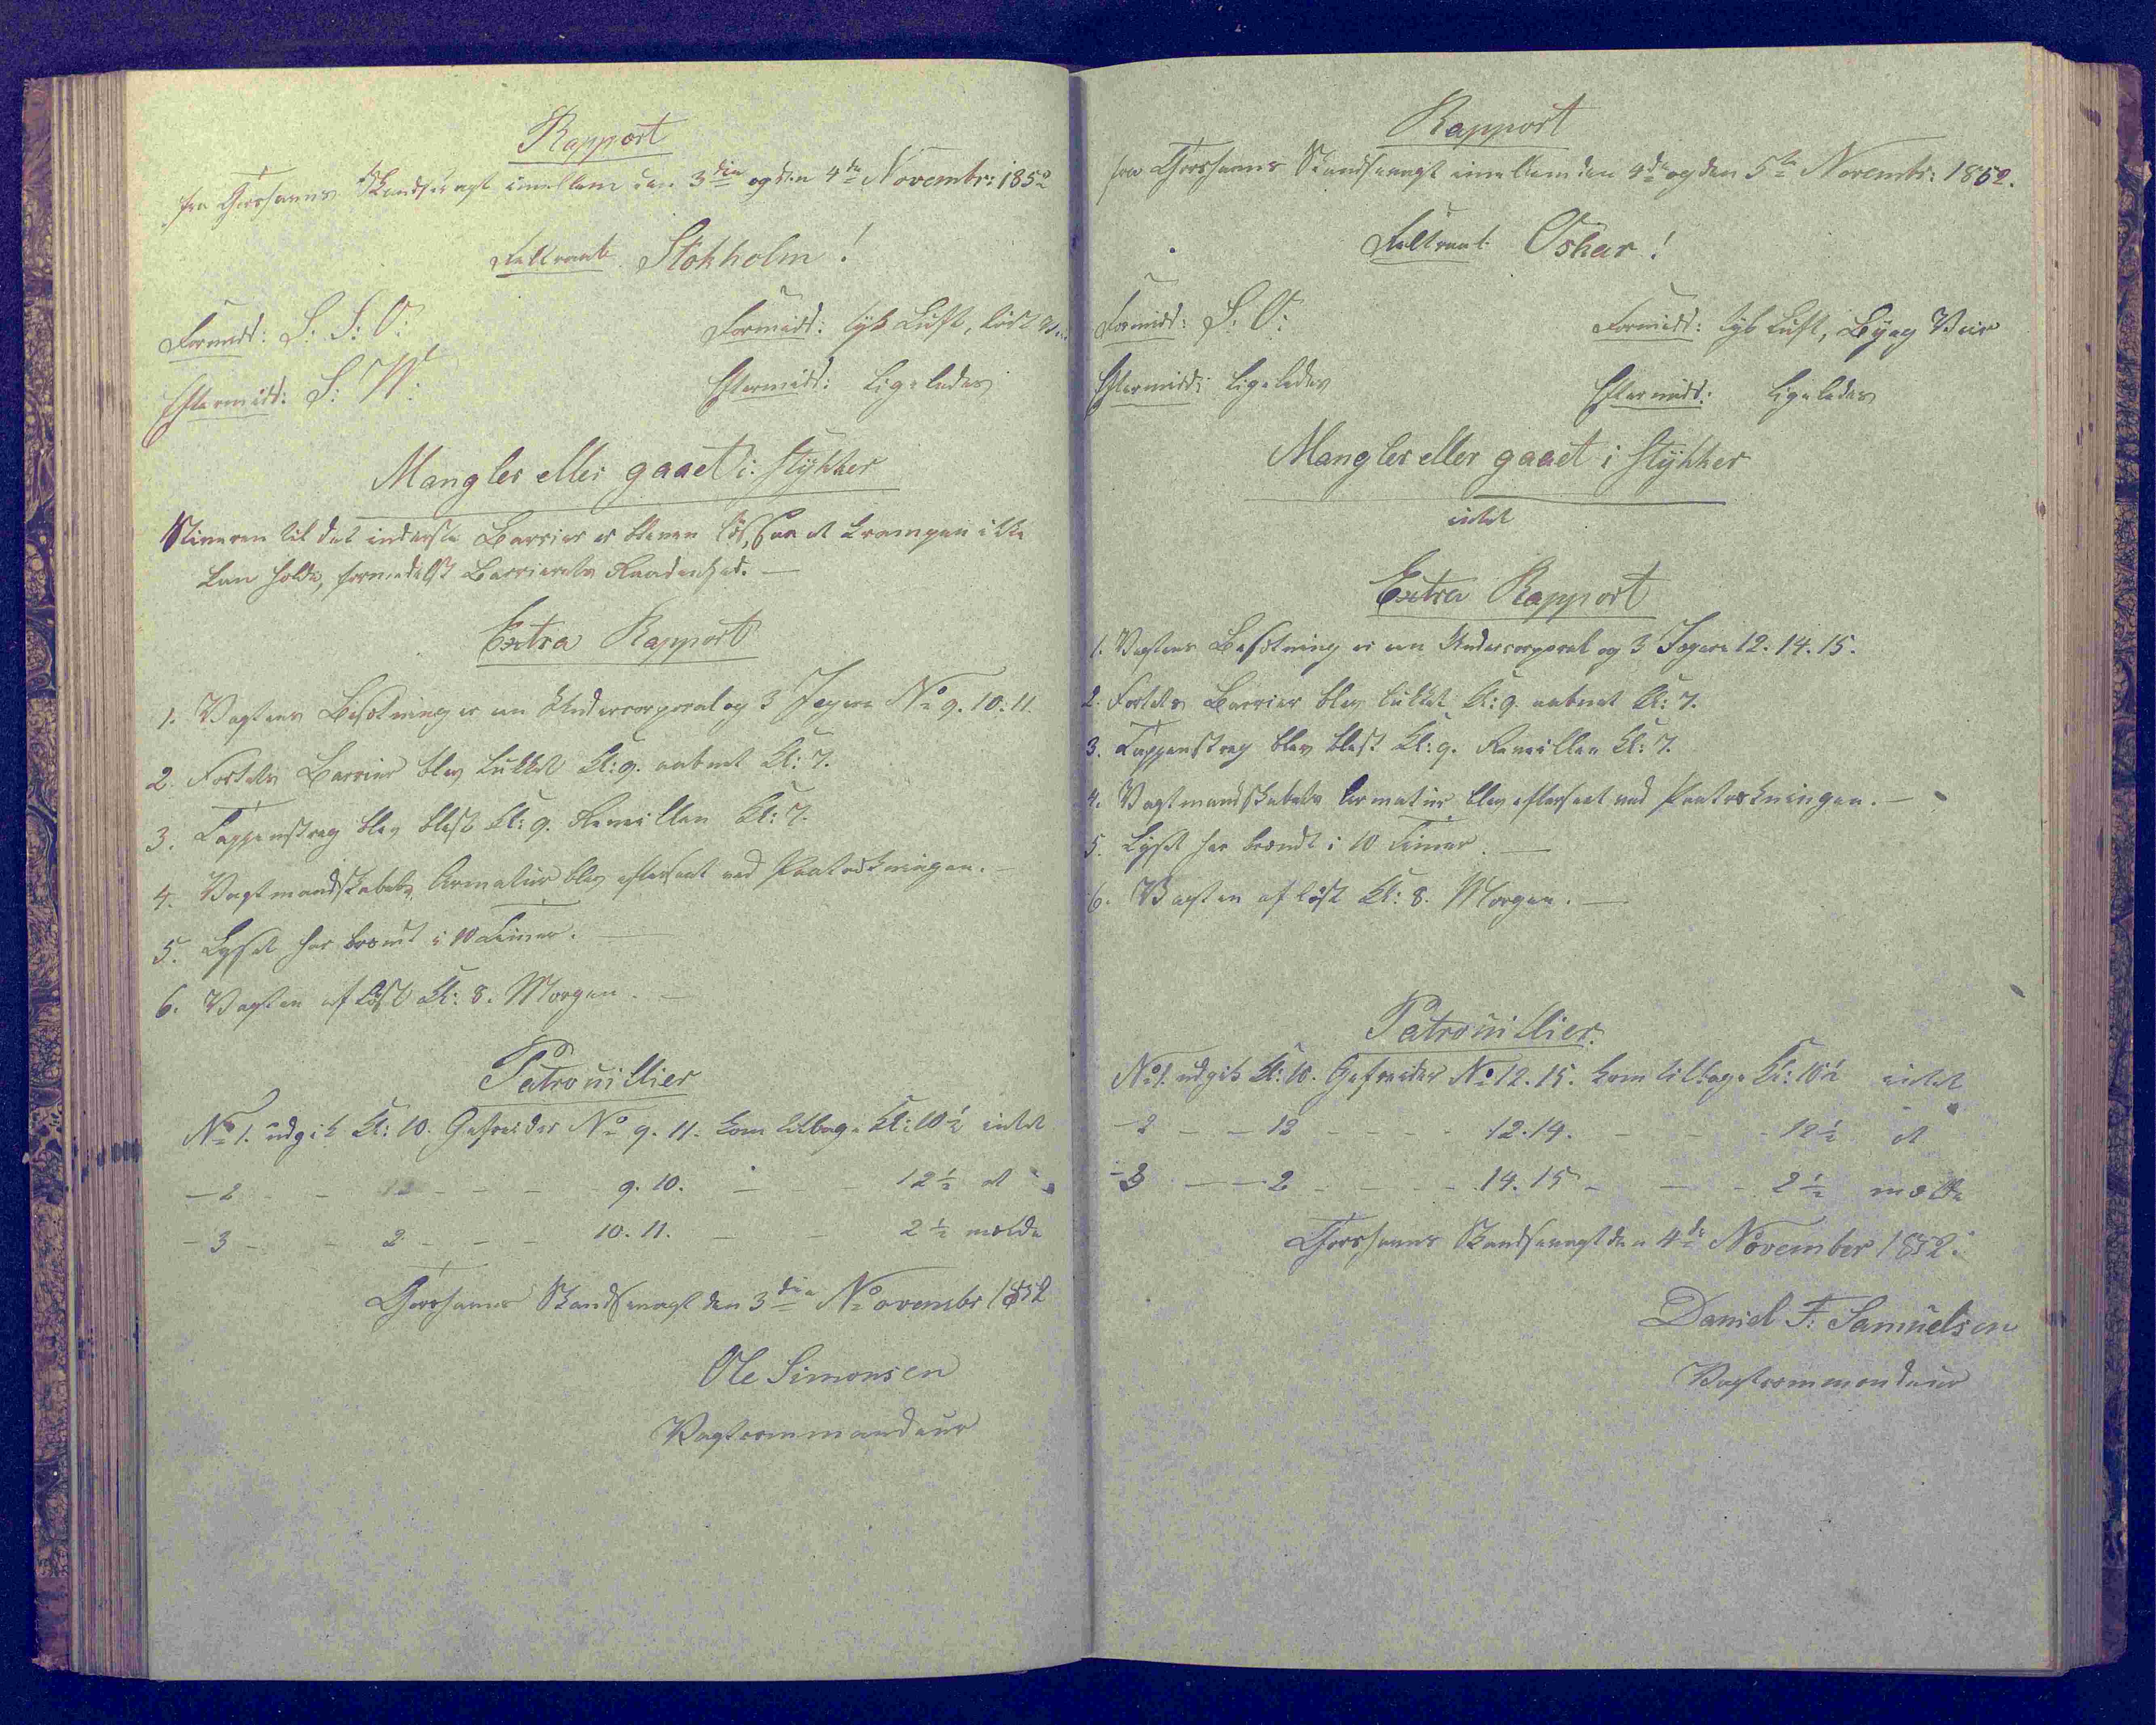 Rapport
fra Thorshavns Skandsevagt imellem den 3die og den 4de Novembr: 1852
Feltraab Stokholm!
Formidd: S: S: O:
Formidd: tyk Luft, løst
Eftermidd: S: W:
Eftermidd: ligeledes
Mangler eller gaaet i Stykker
til det inderste Barrier er bleven løs, saa at Krampen ikke
kan holde, formedelst Barrierets Raadenhed. —
Extra Rapport
1. Vagtens Besætning er een Undercorporal og 3 Jægere No 9. 10. 11.
2. Fortets Barrier blev lukket Kl: 9. aabnet Kl: 7.
3. Tappenstreg blev blæst Kl: 9. Reveillen Kl: 7.
4. Vagtmandskabets Armatur blev efterseet ved Paatrækningen. —
5. Lyset har brændt i 10 Timer. —
6. Vagten afløst Kl: 8. Morgen. —
Patrouillier
No 1. udgik Kl: 10. Gefreider No 9. 11. kom tilbage Kl: 10½ intet
— 2 - - 12 - - - 9. 10. — - 12½ at
- 3 - - 2 - - - 10. 11. — - 2½ mælde
Thorshavns Skandsevagt den 3die Novembr 1852
Ole Simonsen
Vagtcommandeur
Rapport
fra Thorshavns Skandsevagt imellem den 4de og den 5te Novembr: 1852.
Feltraab Oskar!
Formidd: S: O:
Formidd: tyk Luft, Byag Veir
Eftermidd: ligeledes
Eftermidd: ligeledes
Mangler eller gaaet i Stykker
intet
Extra Rapport
1. Vagtens Besætning er een Undercorporal og 3 Jægere 12. 14. 15.
2. Fortets Barrier blev lukket Kl: 9. aabnet Kl: 7.
3. Tappenstreg blev blæst Kl: 9. Reveillen Kl: 7.
4. Vagtmandskabets Armatur blev efterseet ved Paatrækningen. —
5. Lyset har brændt i 10 Timer. —
6. Vagten afløst Kl: 8. Morgen. —
Patrouillier.
No 1. udgik Kl: 10. Gefreider No 12. 15. kom tilbage Kl: 10½ intet
- 2 - - 12 - - - - 12. 14. - - - 12½ at
- 3 - - 2 - - - - 14. 15 - - - 2½ mælde
Thorshavns Skandsevagt den 4de November 1852.
Daniel F: Samuelsen
Vagtcommandeur